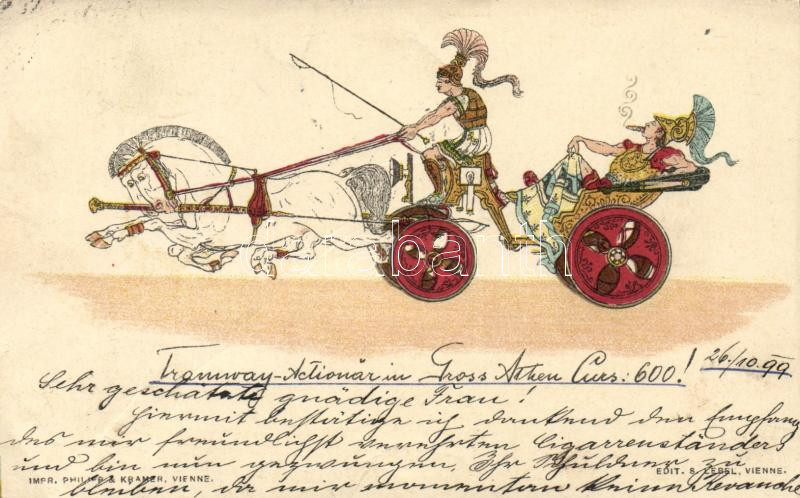 darabanth
Tramway-Actionär in Gross Athen Curs: 600! 26./10.99
Sehr geschätzte gnädige Frau!
Hiermit bestätige ich dankend den Empfang
des mir freundlichst verehrten Cigarrenständers
und bin nun gezwungen, Ihr Schuldner zu
IMPR. PHILIPP & KRAMER, VIENNE.
EDIT. S. VIENNE.
bleiben, da mir momentan keine Revanche